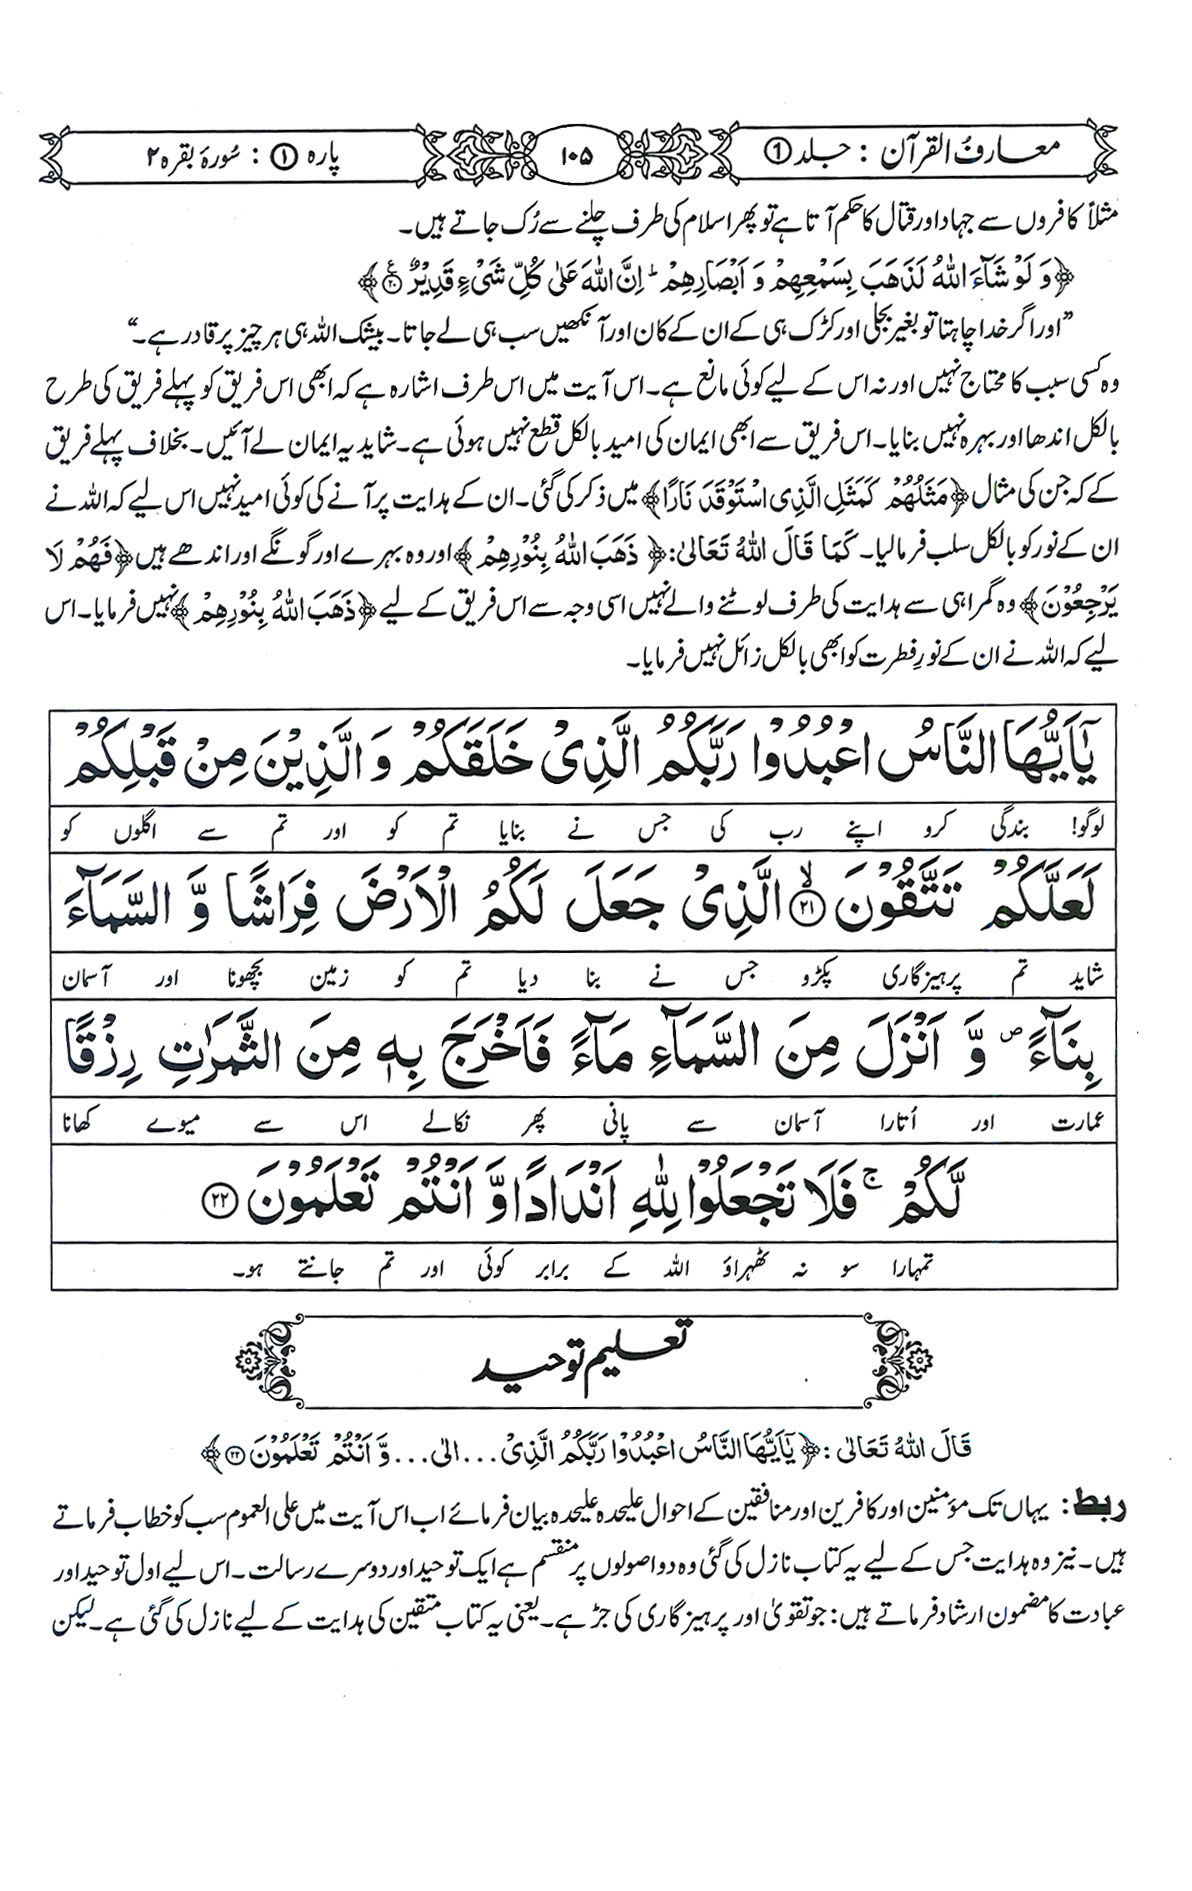 معارفُ القرآن : جلد ①
۱۰۵
پارہ ① : سُورۂ بقرہ ۲
مثلاً کافروں سے جہاد اور قتال کا حکم آتا ہے تو پھر اسلام کی طرف چلنے سے رُک جاتے ہیں۔
﴿وَ لَوْ شَآءَ اللّٰهُ لَذَهَبَ بِسَمْعِهِمْ وَ اَبْصَارِهِمْ ؕ اِنَّ اللّٰهَ عَلٰى كُلِّ شَیْءٍ قَدِیْرٌ ۲۰﴾
”اور اگر خدا چاہتا تو بغیر بجلی اور کڑک ہی کے ان کے کان اور آنکھیں سب ہی لے جاتا۔ بیشک اللہ ہی ہر چیز پر قادر ہے۔“
وہ کسی سبب کا محتاج نہیں اور نہ اس کے لیے کوئی مانع ہے۔ اس آیت میں اس طرف اشارہ ہے کہ ابھی اس فریق کو پہلے فریق کی طرح
بالکل اندھا اور بہرہ نہیں بنایا۔ اس فریق سے ابھی ایمان کی امید بالکل قطع نہیں ہوئی ہے۔ شاید یہ ایمان لے آئیں۔ بخلاف پہلے فریق
کے کہ جن کی مثال ﴿مَثَلُهُمْ كَمَثَلِ الَّذِی اسْتَوْقَدَ نَارًا﴾ میں ذکر کی گئی۔ ان کے ہدایت پر آنے کی کوئی امید نہیں اس لیے کہ اللہ نے
ان کے نور کو بالکل سلب فرمالیا۔ كَمَا قَالَ اللّٰهُ تَعَالٰی: ﴿ذَهَبَ اللّٰهُ بِنُوْرِهِمْ﴾ اور وہ بہرے اور گونگے اور اندھے ہیں ﴿فَهُمْ لَا
یَرْجِعُوْنَ﴾ وہ گمراہی سے ہدایت کی طرف لوٹنے والے نہیں اسی وجہ سے اس فریق کے لیے ﴿ذَهَبَ اللّٰهُ بِنُوْرِهِمْ﴾ نہیں فرمایا۔ اس
لیے کہ اللہ نے ان کے نورِ فطرت کو ابھی بالکل زائل نہیں فرمایا۔
یٰۤاَیُّهَا النَّاسُ اعْبُدُوْا رَبَّكُمُ الَّذِیْ خَلَقَكُمْ وَ الَّذِیْنَ مِنْ قَبْلِكُمْ
لوگو! بندگی کرو اپنے رب کی جس نے بنایا تم کو اور تم سے اگلوں کو
لَعَلَّكُمْ تَتَّقُوْنَ ۙ۲۱ الَّذِیْ جَعَلَ لَكُمُ الْاَرْضَ فِرَاشًا وَّ السَّمَآءَ
شاید تم پرہیزگاری پکڑو جس نے بنا دیا تم کو زمین بچھونا اور آسمان
بِنَآءً ۪ وَّ اَنْزَلَ مِنَ السَّمَآءِ مَآءً فَاَخْرَجَ بِهٖ مِنَ الثَّمَرٰتِ رِزْقًا
عمارت اور اُتارا آسمان سے پانی پھر نکالے اس سے میوے کھانا
لَّكُمْ ۚ فَلَا تَجْعَلُوْا لِلّٰهِ اَنْدَادًا وَّ اَنْتُمْ تَعْلَمُوْنَ ۲۲
تمہارا سو نہ ٹھہراؤ اللہ کے برابر کوئی اور تم جانتے ہو۔
تعلیم توحید
قَالَ اللّٰهُ تَعَالٰی : ﴿یٰۤاَیُّهَا النَّاسُ اعْبُدُوْا رَبَّكُمُ الَّذِیْ... الٰی... وَّ اَنْتُمْ تَعْلَمُوْنَ ۲۲﴾
ربط: یہاں تک مؤمنین اور کافرین اور منافقین کے احوال علیحدہ علیحدہ بیان فرمائے اب اس آیت میں علی العموم سب کو خطاب فرماتے
ہیں۔ نیز وہ ہدایت جس کے لیے یہ کتاب نازل کی گئی وہ دو اصولوں پر منقسم ہے ایک توحید اور دوسرے رسالت۔ اس لیے اول توحید اور
عبادت کا مضمون ارشاد فرماتے ہیں: جو تقویٰ اور پرہیزگاری کی جڑ ہے۔ یعنی یہ کتاب متقین کی ہدایت کے لیے نازل کی گئی ہے۔ لیکن